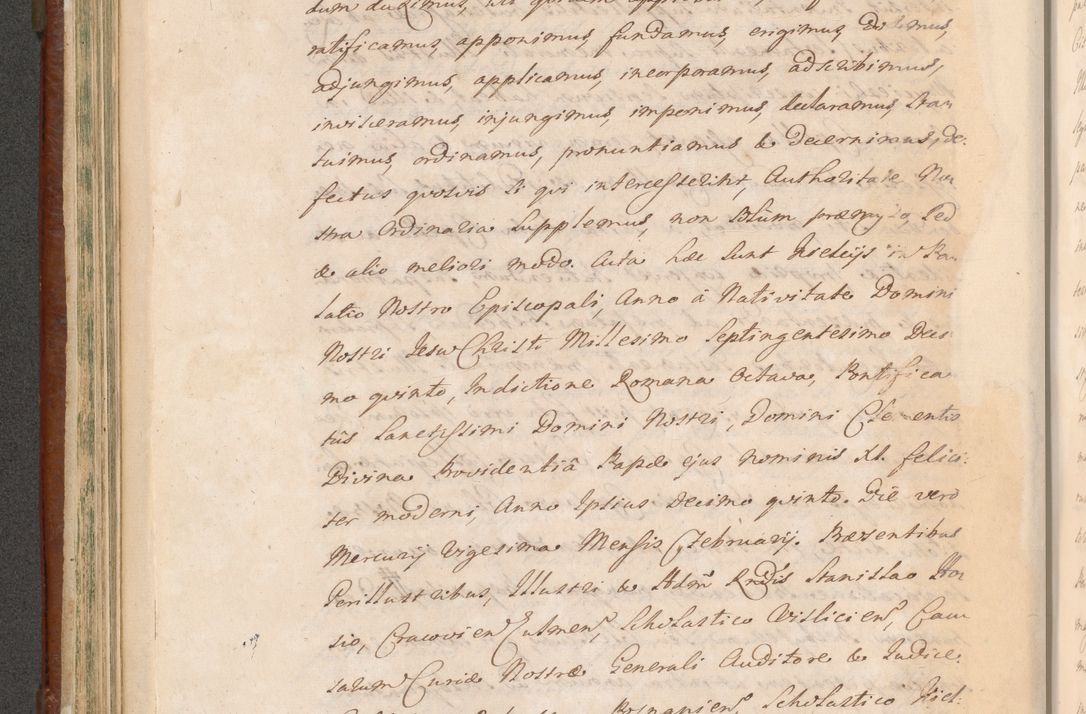 dum duximus, uti quidem
ratificamus, apponimus, fundamus, erigimus,
adjungimus, applicamus, incorporamus, adscribimus,
invisceramus, injungimus, imponimus, declaramus, Sta-
tuimus, ordinamus, pronuntiamus & decernimus, de-
fectus quosvis si qui intercesserint, Authoritate No-
stra Ordinaria Supplemus, non solum præmisso, Sed
& alio meliori modo. Acta hæc sunt Kielcijs in Pa-
latio Nostro Episcopali, Anno à Nativitate Domini
Nostri Jesu Christi Millesimo Septingentesimo Deci-
mo quinto, Indictione Romana Octava, Pontifica-
tûs Sanctissimi Domini Nostri, Domini Clementis
Divina Providentiâ Papæ ejus nominis XI. felici-
ter moderni, Anno Ipsius decimo quinto. Die vero
Mercurij Vigesima Mensis Februarij. Præsentibus
Perillustribus, Illustri & Adm Rndis Stanislao
sio, Cracovien Culmen, Scholastico Vislicien, Cau-
sarum Curiæ Nostræ Generali Auditore & Judice.
Posnanien, Scholastico Kiel-